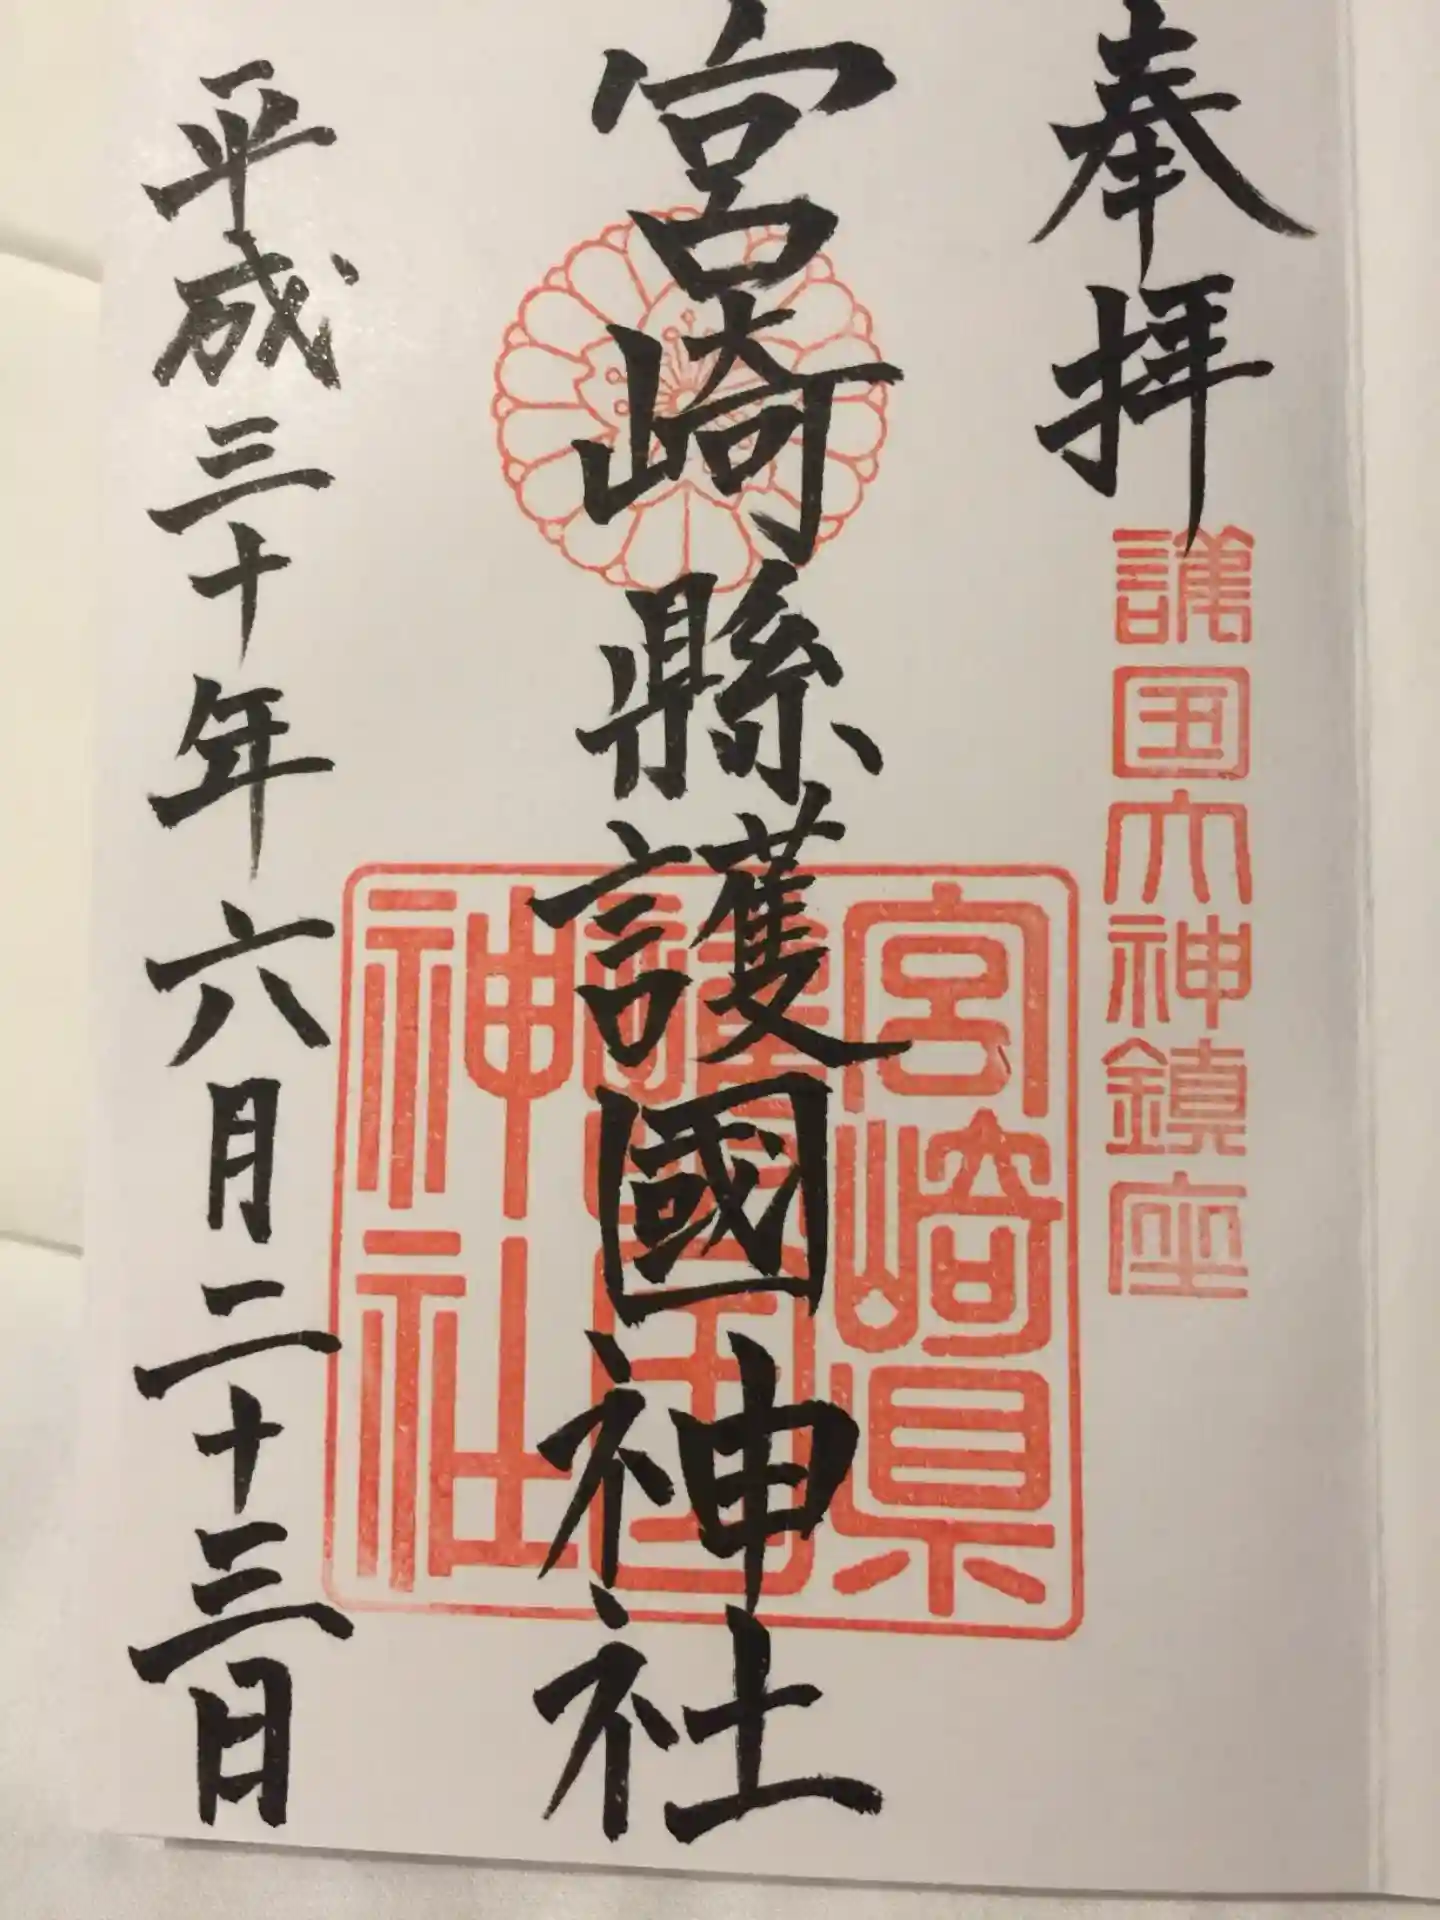 奉拝
護国大神鎮座
宮崎縣護國神社
宮崎県
護国
神社
平成三十年六月二十三日